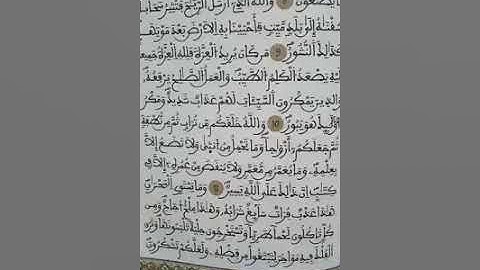 يصنعون 8 والله الذي أرسل الريح فتثير سحابا
فسقنه إلى بلد ميت فأحيينا به الارض بعد موتها
كذلك النشور 9 من كان يريد العزة فلله العزة جميعا
إليه يصعد الكلم الطيب والعمل الصلح يرفعه
والذين يمكرون السيئات لهم عذاب شديد ومكر
أولئك هو يبور 10 والله خلقكم من تراب ثم من نطفة
ثم جعلكم أزواجا وما تحمل من أنثى ولا تضع إلا
بعلمه وما يعمر من معمر ولا ينقص من عمره إلا في
كتب إن ذلك على الله يسير 11 وما يستوي البحران
هذا عذب فرات سائغ شرابه وهذا ملح أجاج ومن
كل تاكلون لحما طريا وتستخرجون حلية تلبسونها وترى
الفلك فيه مواخر لتبتغوا من فضله ولعلكم تشكرون